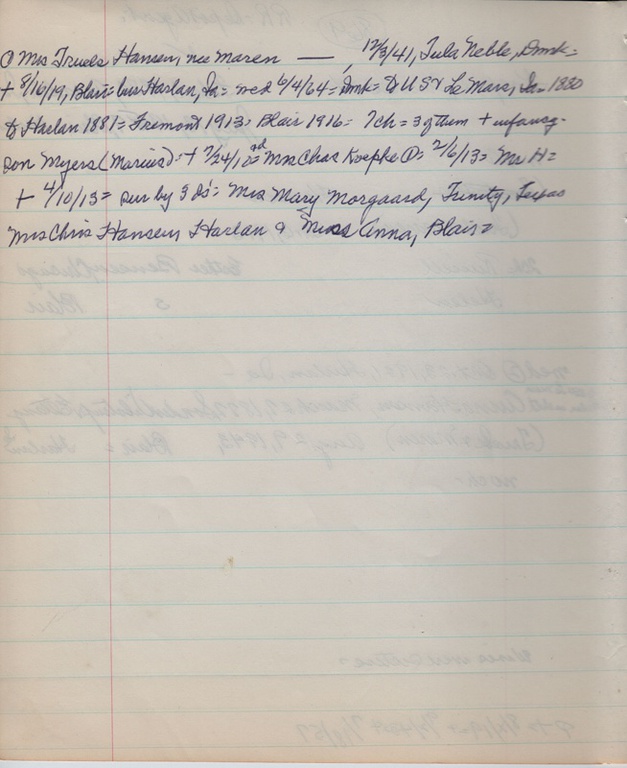 ① Mrs Truels Hansen, nee Maren ——, 12/3/41, Tula Neble, Dmk =
+ 8/16/19, Blair = bur Harlan, Ia = med 6/4/64 = Dmk = to US & Le Mars, Ia = 1880
to Harlan 1881 = Fremont 1913 = Blair 1916 = 7 ch = 3 of them + infancy -
son Myers (Marius) = + 7/24/10 = Mrs Chas Koepke ① = 2/6/13 = Mr H =
+ 4/10/13 = sur by 3 ds' = Mrs Mary Morgaard, Trinity, Texas
Mrs Chris Hansen, Harlan & Miss Anna, Blair =